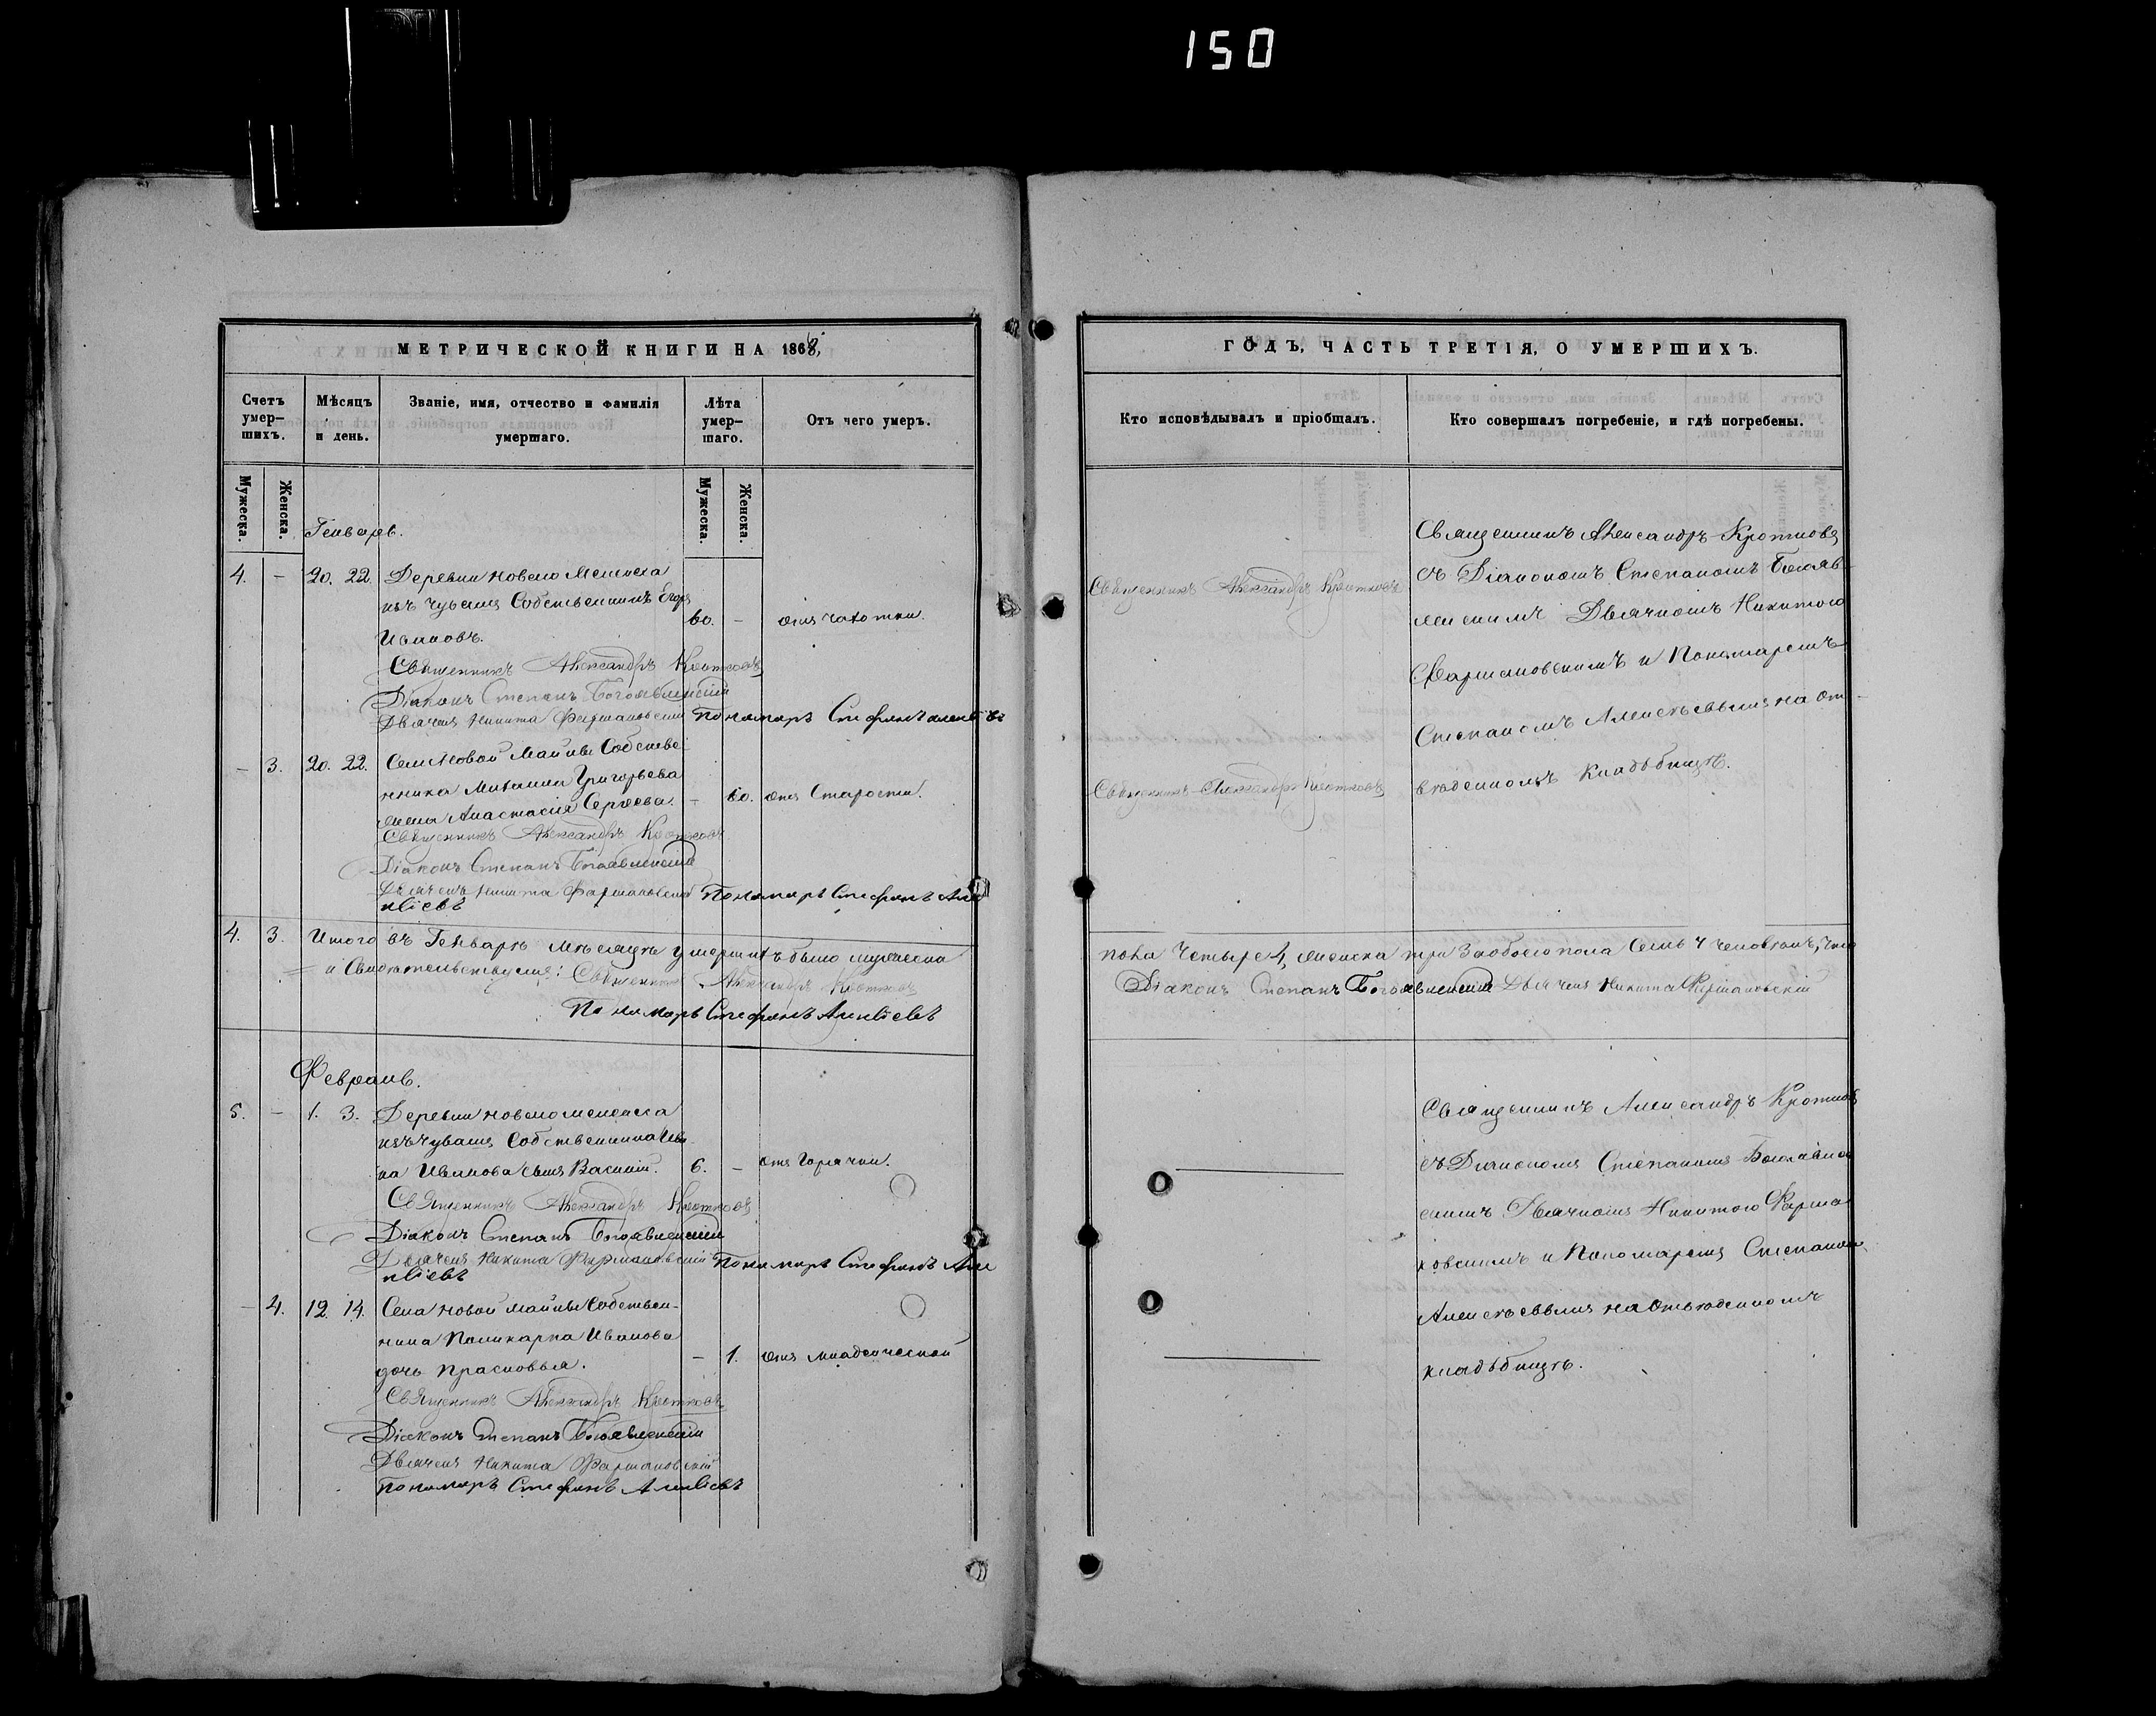 150
МЕТРИЧЕСКОЙ КНИГИ НА 1868,
Счетъ умер-шихъ.
Мѣсяцъ и день.
Званіе, имя, отчество и фамилія умершаго.
Лѣта умер-шаго.
Отъ чего умеръ.
Мужеска.
Женска.
Мужеска.
Женска.
Генварь.
4. – 20. 22. Деревни Новаго
изъ чувашъ Собственникъ Егоръ
60. – отъ чахотки.
Священникъ Александръ Кротковъ
Діаконъ Степанъ Богоявленскій
Дьячекъ Никита Фармаковскій Пономарь Стефанъ
– 3. 20. 22. Села Новой Майны Собстве-
нника Михаила Григорьева
жена Анастасія Сергѣева. – 60. отъ Старости.
Священникъ Александръ Кротковъ
Діаконъ Степанъ Богоявленскій
Дьячекъ Никита Фармаковскій Пономарь Стефанъ Але
ксіевъ
4. 3. Итого въ Генварѣ мѣсяцѣ умершихъ было мужеска
и Свидѣтельствуемъ: Священникъ Александръ Кротковъ
Пономарь Стефанъ Алексіевъ
Февраль.
5. – 1. 3. Деревни
изъ чувашъ Собственника Ива-
на Иванова сынъ Василій. 6. – отъ Горячки.
Священникъ Александръ Кротковъ
Діаконъ Степанъ Богоявленскій
Дьячекъ Никита Фармаковскій Пономарь Стефанъ Але
ксіевъ
– 4. 12. 14. Села Новой Майны Собствен-
ника Поликарпа Иванова
дочь Прасковья. – 1. отъ младенческой
Священникъ Александръ Кротковъ
Діаконъ Степанъ Богоявленскій
Дьячекъ Никита Фармаковскій
Пономарь Стефанъ Алексіевъ
ГОДЪ, ЧАСТЬ ТРЕТІЯ, О УМЕРШИХЪ.
Кто исповѣдывалъ и пріобщалъ.
Кто совершалъ погребеніе, и гдѣ погребены.
Священникъ Александръ Кротковъ
Священникъ Александръ Кротковъ
Священникъ Александръ Кротковъ
съ Діакономъ Степаномъ Богояв-
ленскимъ Дьячкомъ Никитою
Фармаковскимъ и Пономаремъ
Степаномъ Алексѣевымъ на от-
веденномъ кладбищѣ.
пола Четыре 4, женска три 3 а обоего пола Семь 7 человѣкъ, что
Діаконъ Степанъ Богоявленскій Дьячекъ Никита Фармаковскій
Священникъ Александръ Кротковъ
съ Діакономъ Степаномъ Богоявлен
скимъ Дьячкомъ Никитою Фарма
ковскимъ и Пономаремъ Степаномъ
Алексѣевымъ на Отведенномъ
кладбищѣ.